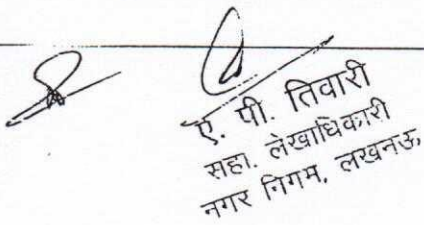 ए. पी. तिवारी
सहा. लेखाधिकारी
नगर निगम, लखनऊ,